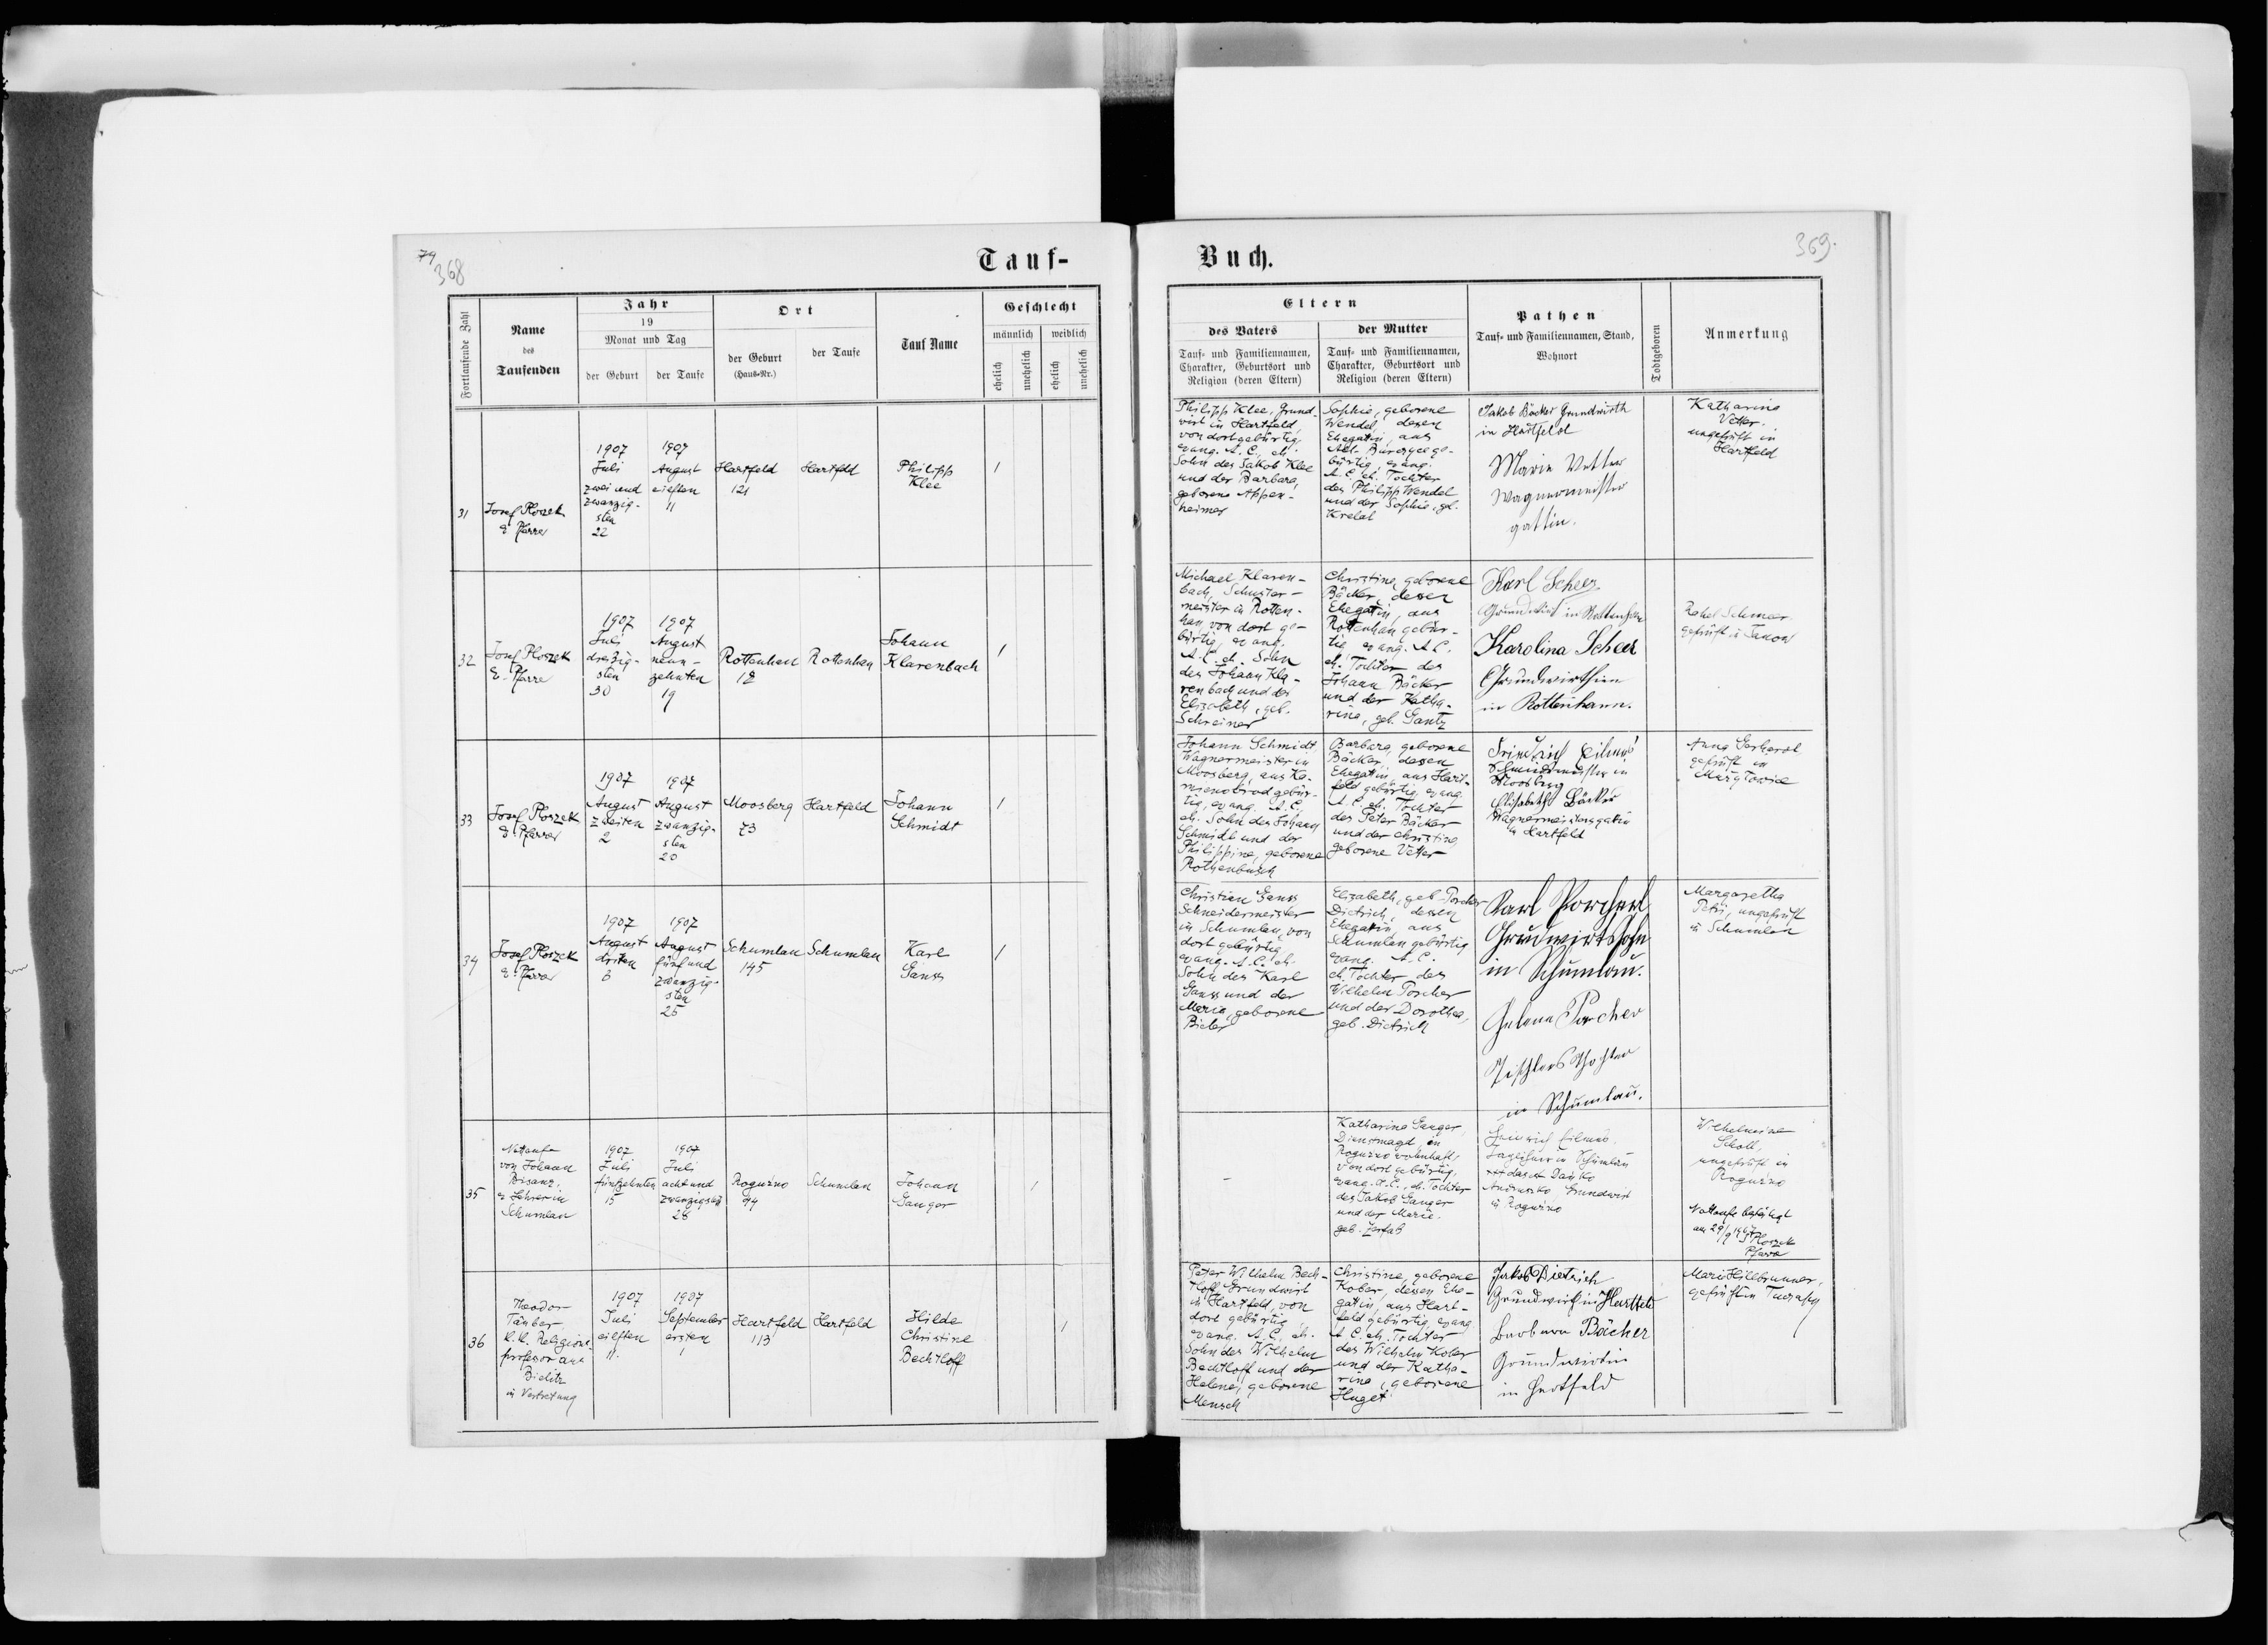 79
368
Tauf-
Fortlaufende Zahl
Name
des
Taufenden
Jahr
19
Monat und Tag
der Geburt
der Taufe
Ort
der Geburt
(Haus-Nr.)
der Taufe
Tauf Name
Geschlecht
männlich
weiblich
ehelich
unehelich
ehelich
unehelich
31
Josef Ploszek
E. Pfarrer
1907
Juli
zwei und
zwanzig-
sten
22
1907
August
eilften
11
Hartfeld
121
Hartfeld
Philipp
Klee
1
32
Josef Ploszek
E. Pfarre
1907
Juli
dreißig-
sten
30
1907
August
neun-
zehnten
19
Rottenhan
12
Rottenhan
Johann
Klarenbach
1
33
Josef Ploszek
E. Pfarrer
1907
August
zweiten
2
1907
August
zwanzig-
sten
20
Moosberg
73
Hartfeld
Johann
Schmidt
1
34
Josef Ploszek
E. Pfarrer
1907
August
dritten
3
1907
August
fünf und
zwanzig-
sten
25
Schumlau
145
Schumlau
Karl
Ganss
1
35
Nottaufe
von Johann
Bisanz,
E. Lehrer in
Schumlau
1907
Juli
fünfzehnten
15
1907
Juli
acht und
zwanzigsten
28
Roguźno
94
Schumlau
Johann
Ganger
1
36
Theodor
Täuber
k.k. Religions-
professor aus
Bielitz
in Vertretung
1907
Juli
eilften
11.
1907
September
ersten
1
Hartfeld
113
Hartfeld
Hilde
Christine
Bechtloff
1
Buch.
369.
Eltern
des Vaters
Tauf- und Familiennamen,
Charakter, Geburtsort und
Religion (deren Eltern)
der Mutter
Tauf- und Familiennamen,
Charakter, Geburtsort und
Religion (deren Eltern)
Pathen
Tauf- und Familiennamen, Stand,
Wohnort
Todtgeboren
Anmerkung
Philipp Klee, Grund-
wirt in Hartfeld,
von dort gebürtig,
evang. A.C., eh.
Sohn des Jakob Klee
und der Barbara,
geborene Appen-
heimer
Sophie, geborene
Wendel, dessen
Ehegatin, aus
ge-
bürtig, evang.
A.C. eh. Tochter
des Philipp Wendel
und der Sophie, gb.
Krelat
Jakob Bäcker Grundwirth
in Hartfeld
Marie Vetter
Wagnermeister
gattin.
Katharina
Vetter,
ungeprüft in
Hartfeld
Michael Klaren-
bach, Schuster-
meister in Rotten-
han von dort ge-
bürtig, evang.
A.C. eh. Sohn
des Johann Kla-
renbach und der
Elizabeth, geb.
Schreiner
Christina, geborene
Bäcker, dessen
Ehegatin, aus
Rottenhan gebür-
tig, evang. A.C.
eh. Tochter des
Johann Bäcker
und der Katha-
rina, geb. Gantz
Karl Scheer
Grundwirt in Rottenhan
Karolina Scheer
Grundwirthin
in Rottenhann.
Rahel Schmeer
geprüft in Janow
Johann Schmidt
Wagnermeister in
Moosberg, aus Ka-
mienobrod gebür-
tig, evang. A.C.,
eh. Sohn des Johann
Schmidt und der
Philippine, geborene
Rothenbusch
Barbara, geborene
Bäcker, dessen
Ehegatin, aus Hart-
feld gebürtig, evang.
A.C. eh. Tochter
des Peter Bäcker
und der Christine,
geborene Vetter
Friedrich Filmus
Schmiedmeister in
Moosberg
Elisabeth Bäcker
Wagnermeistersgattin
in Hartfeld
Anna Gerhardt
geprüft in
Christian Ganss
Schneidermeister
in Schumlau, von
dort gebürtig,
evang. A.C. eh.
Sohn des Karl
Ganss und der
Maria, geborene
Bieler
Elizabeth, geb. Porcher
Dietrich, dessen
Ehegatin, aus
Schumlau gebürtig
evang. A.C.
eh. Tochter des
Wilhelm Porcher
und der Dorothea,
geb. Dietrich
Karl Porcherl
Grudwirtssohn
in Schumlau.
Helena Porcher
Tischlers Tochter
in Schumlau.
Margaretha
Petri, ungeprüft
in Schumlau
-
Katharina Ganger,
Dienstmagd, in
Roguźno wohnhaft,
von dort gebürtig,
evang. A.C., eh. Tochter
des Jakob Ganger
und der Marie
geb. Zerfaß
Heinrich Filmus,
Taglöhner in Schumlau
Danko
Grundwirt
in Roguźno
Wilhelmine
Scholl,
ungeprüft in
Roguźno
Nottaufe bestätigt
am 29/9 1907 JPloszek
Pfarrer
Peter Wilhelm Bech-
tloff Grundwirt
in Hartfeld, von
dort gebürtig,
evang. A.C. eh.
Sohn des Wilhelm
Bechtloff und der
Helene, geborene
Mensch
Christine, geborene
Kober, dessen Ehe-
gatin, aus Hart-
feld gebürtig, evang.
A.C. eh. Tochter
des Wilhelm Kober
und der Katha-
rina, geborene
Huget
Jakob Dietrich
Grundwirth in Hartfeld
Barbara Bächer
Grundwirtin
in Hartfeld
Marie Hillbrunner,
geprüft in